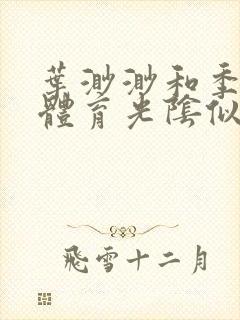 葉渺渺和季
體育光陰似
飛雪十二月